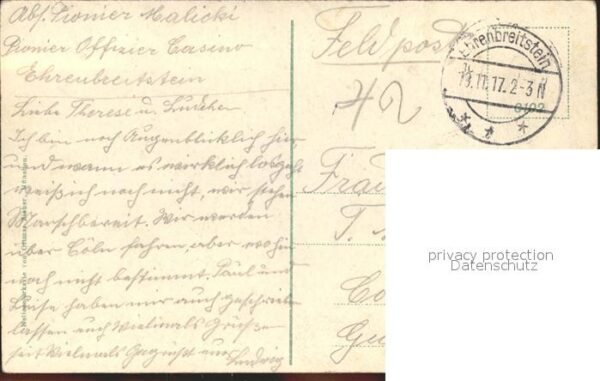 Abs. Pionier Malicki
Pionier Offizier Casino
Ehrenbreitstein
Liebe Therese u.
Ich bin noch Augenblicklich hier
und wann es wirklich losgeht
weiß ich noch nicht, wir stehen
Marschbereit. Wir werden
über Cöln fahren, aber wohin
noch nicht bestimmt. Paul und
Luise haben mir auch geschrieben
lassen auch Vielmals Grüßen
seit Vielmals Gegrüßt von
Ludwig
Feldpost
Ehrenbreitstein
13.11.17. 2-3 N
Frau
T.
Co
Gu
privacy protection
Datenschutz